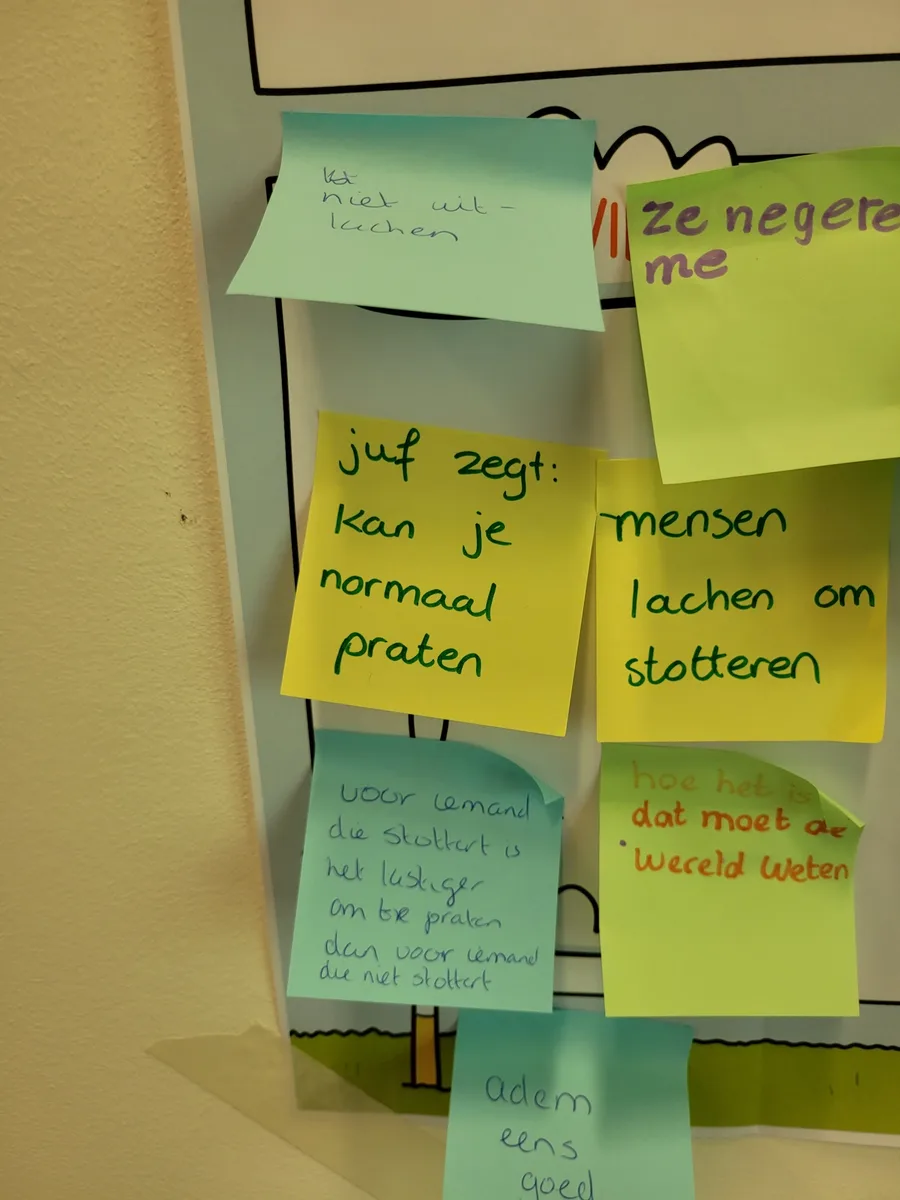 niet uit-
lachen
ze negere
me
juf zegt:
kan je
normaal
praten
mensen
lachen om
stotteren
voor iemand
die stottert is
het lastiger
om te praten
dan voor iemand
die niet stottert
hoe het is
dat moet de
wereld weten
adem
eens
goed